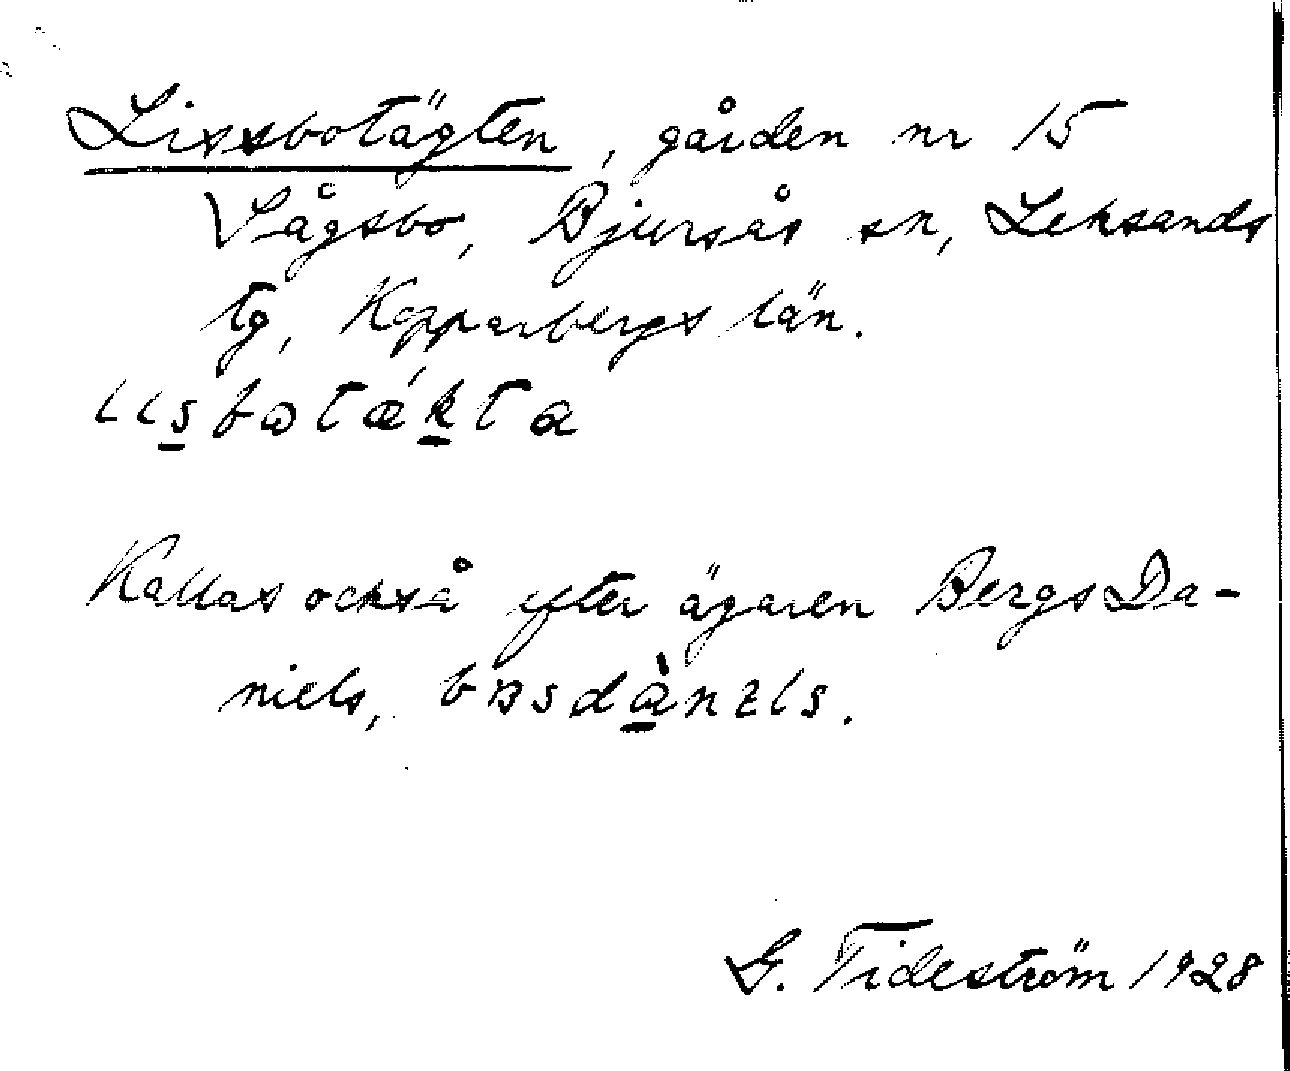 Lissbotägten, gården nr 15
Sågsbo, Bjursås sn, Leksands
tg, Kopparbergs län.
Kallas också efter ägaren Bergs Da-
niels,
G. Tideström 1928